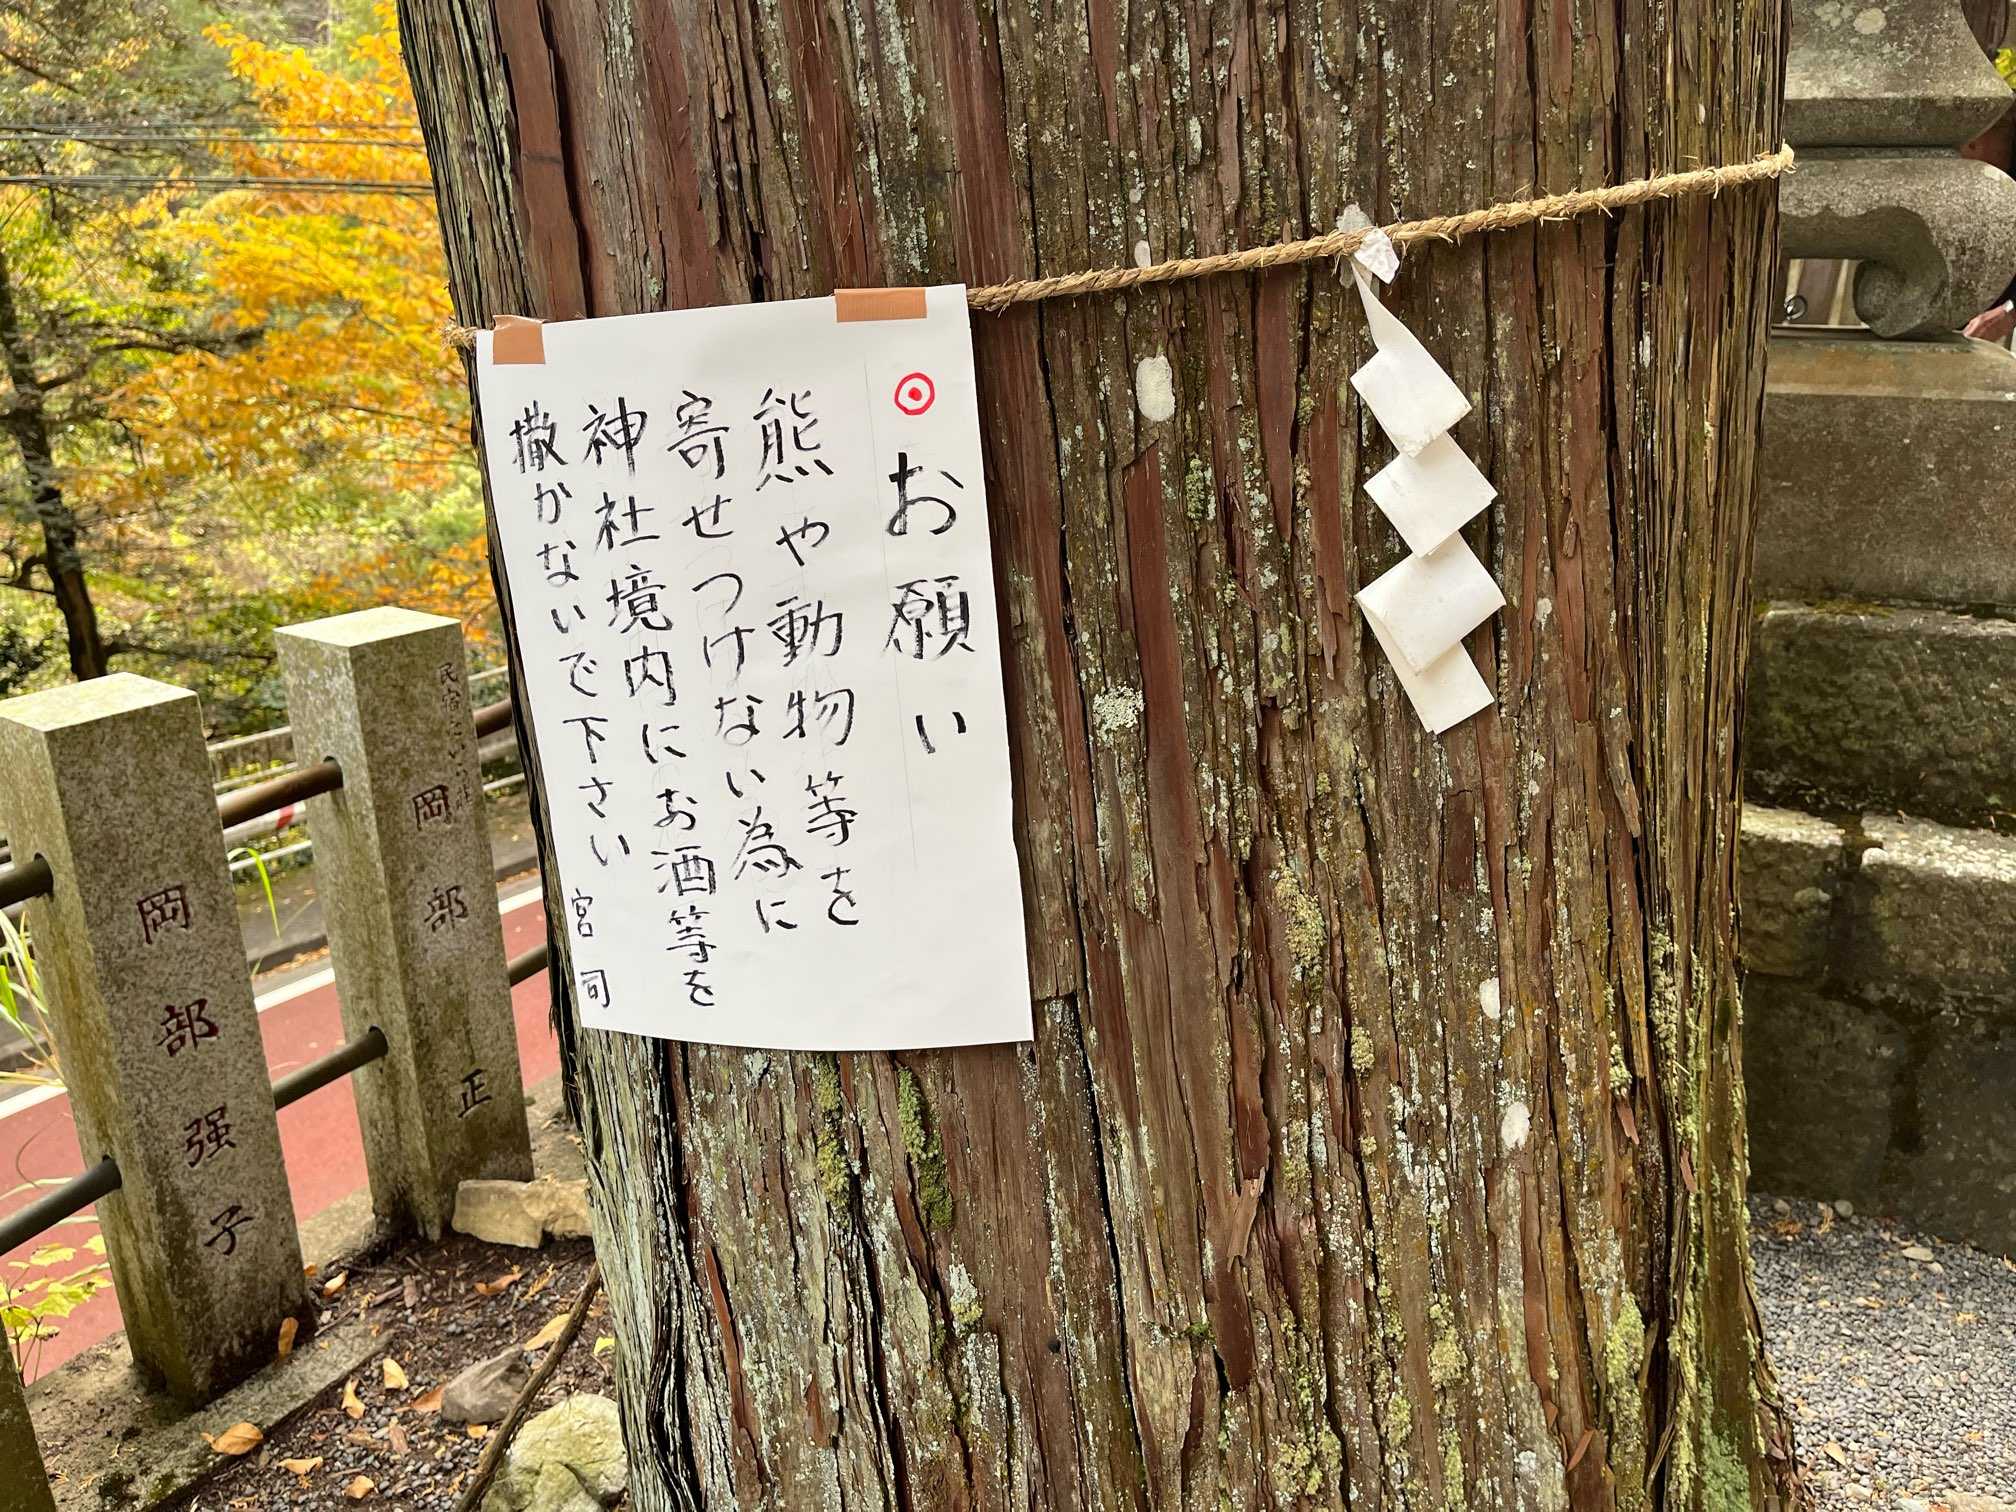 お願い
熊や動物等を
寄せつけない為に
神社境内にお酒等を
撒かないで下さい
宮司
岡部
正
岡部强子